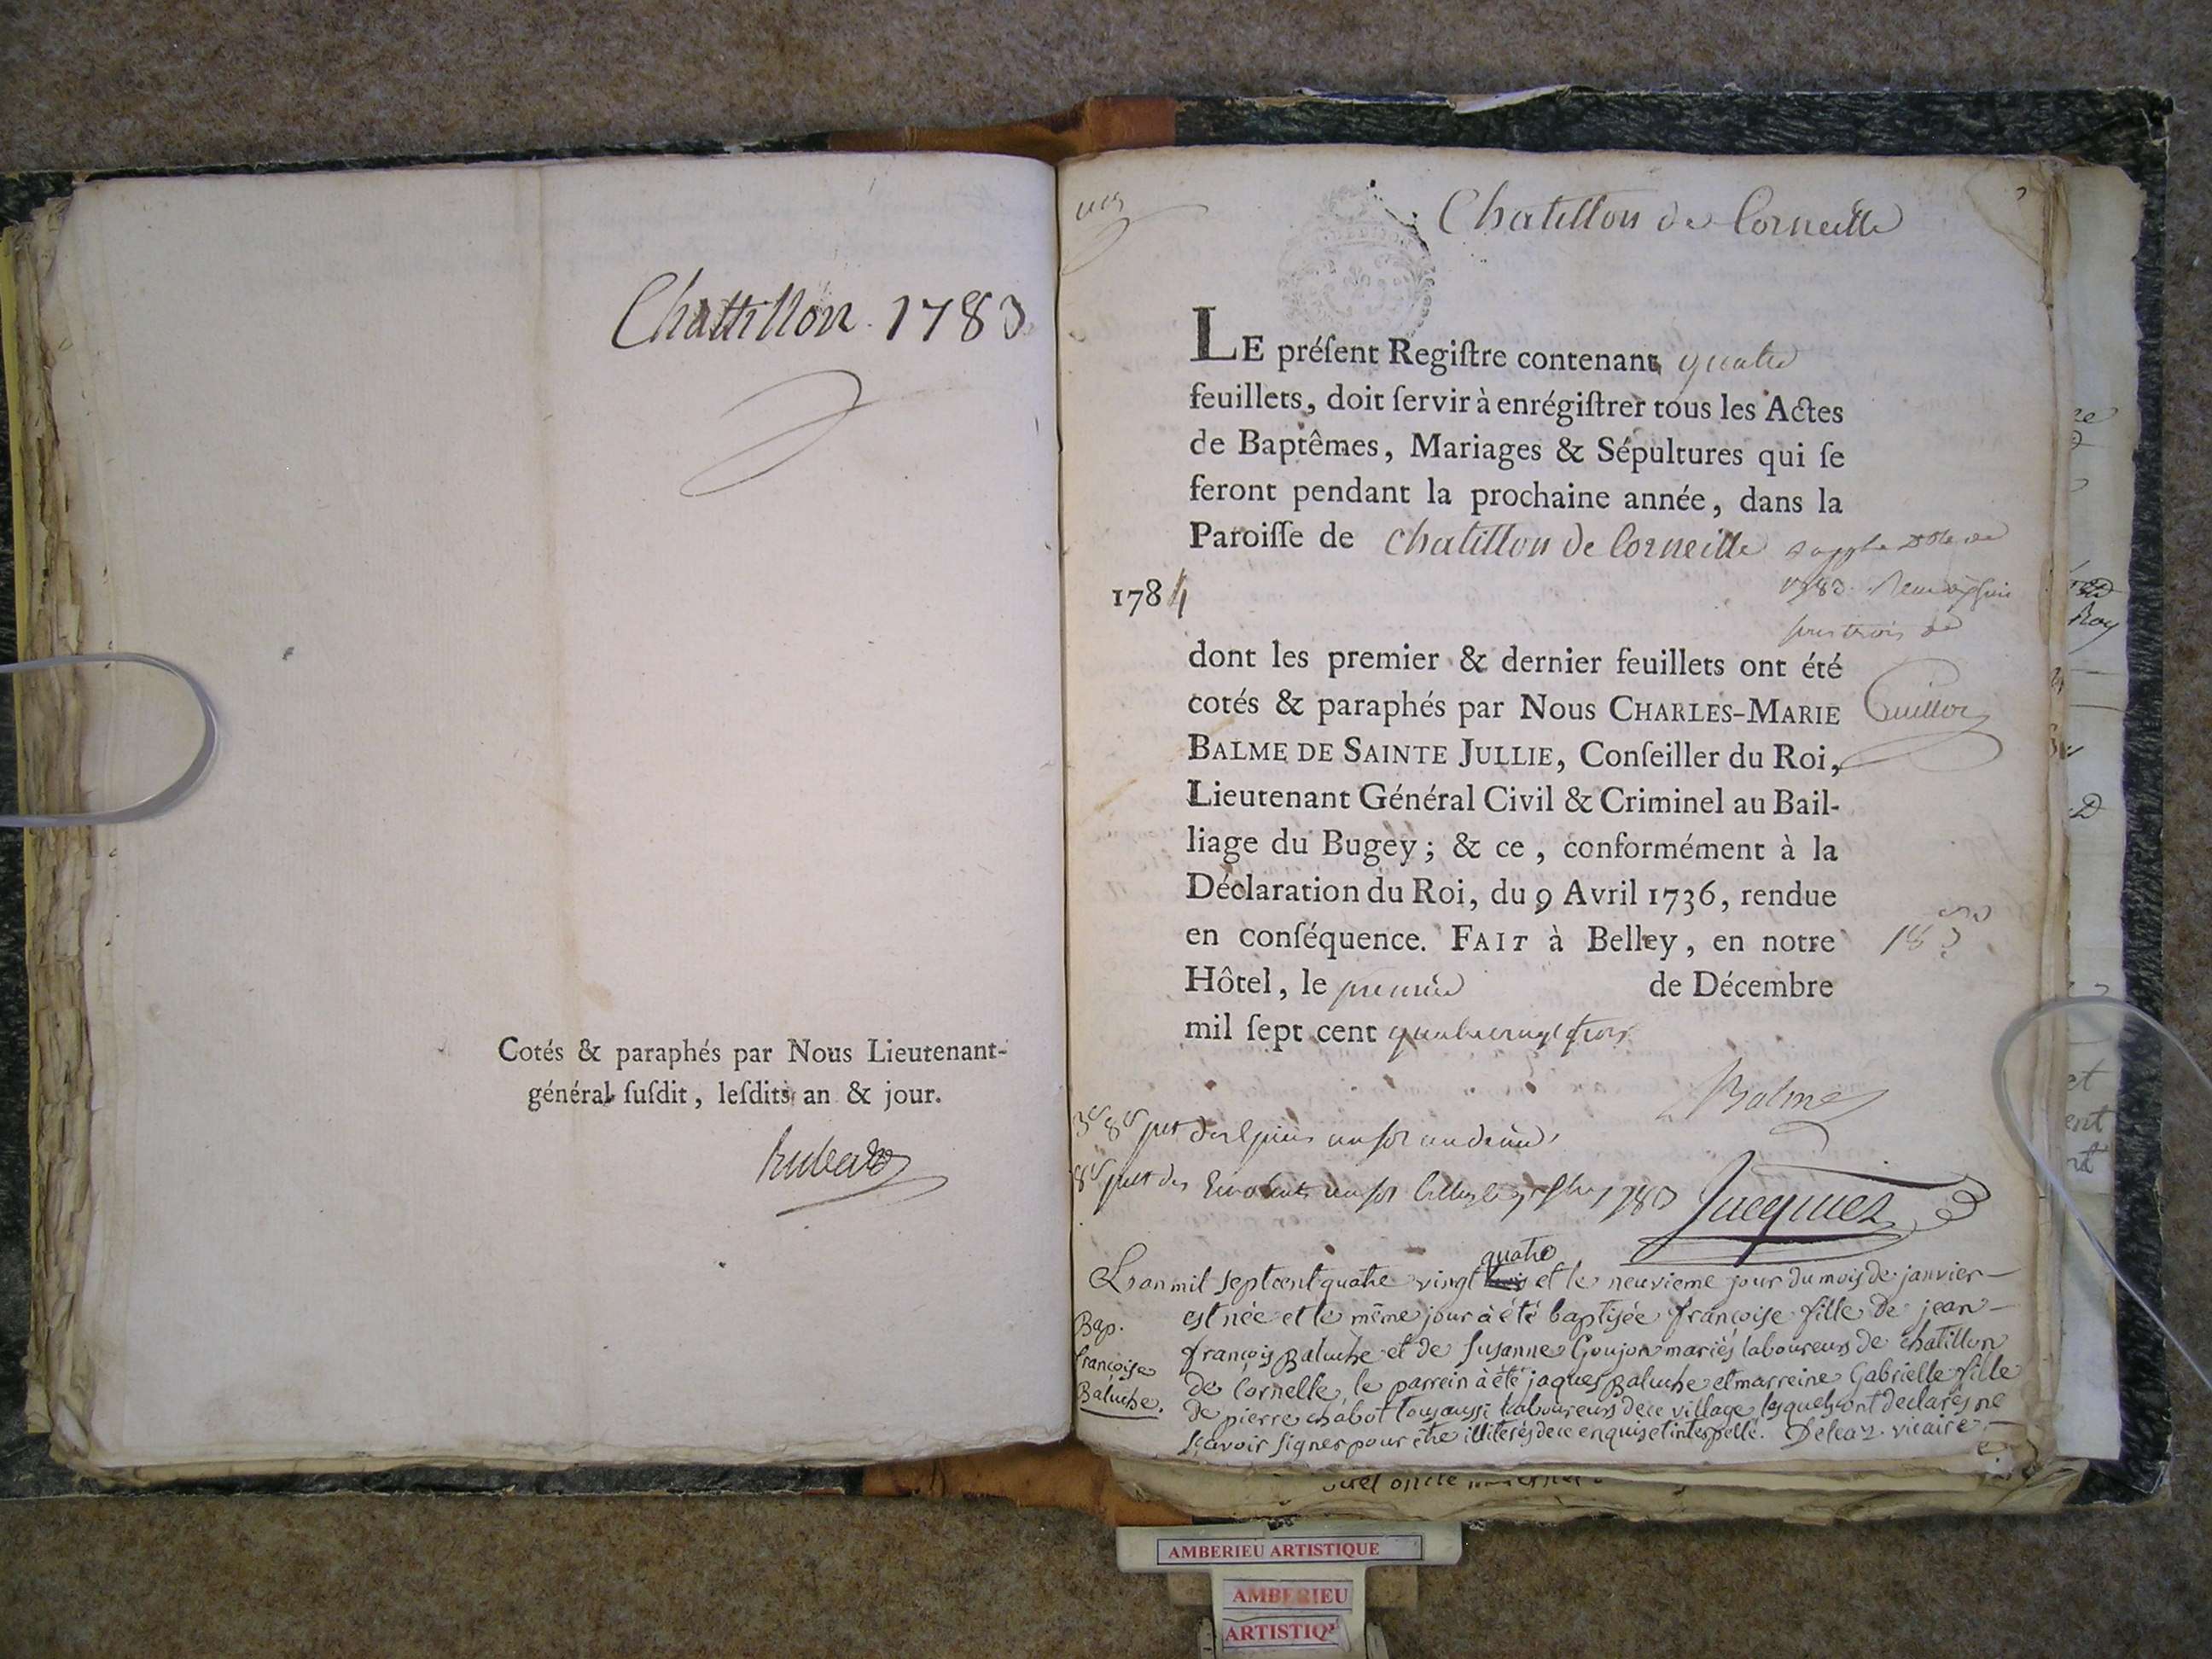 Chattillon 1783
Cotés & paraphés par Nous Lieutenant-
général ſuſdit, leſdits an & jour.
Chatillon de Corneille
LE préſent Regiſtre contenant quatre
feuillets, doit ſervir à enrégiſtrer tous les Actes
de Baptêmes, Mariages & Sépultures qui ſe
feront pendant la prochaine année, dans la
Paroiſſe de chatillon de Corneille
1784
dont les premier & dernier feuillets ont été
cotés & paraphés par Nous CHARLES-MARIE
BALME DE SAINTE JULLIE, Conſeiller du Roi,
Lieutenant Général Civil & Criminel au Bail-
liage du Bugey; & ce, conformément à la
Déclaration du Roi, du 9 Avril 1736, rendue
en conſéquence. FAIT à Belley, en notre
Hôtel, le premier de Décembre
mil ſept cent quatrevingt trois
Balme
Jacquier
Bap.
françoise
Baluche.
L'an mil sept cent quatre vingt quatre et le neuvieme jour du mois de janvier
est née et le même jour à été baptisée françoise fille de jean
françois Baluche et de susanne Goujon mariés laboureurs de chatillon
de Cornelle, le parrein à été jaques Baluche et marreine Gabrielle fille
de pierre chabot tous aussi laboureurs de ce village lesquels ont declarés ne
sçavoir signer pour être illiterés de ce enquis et interpellé. vicaire
AMBERIEU ARTISTIQUE
AMBERIEU
ARTISTIQ